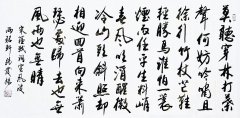 莫聽穿林打葉
聲何妨吟嘯且
徐行竹杖芒鞋
輕勝馬誰怕一蓑
煙雨任平生料峭
春風吹酒醒微
冷山頭斜照卻
相迎回首向來蕭
瑟處歸去也無
風雨也無晴
宋蘇軾詞定風波